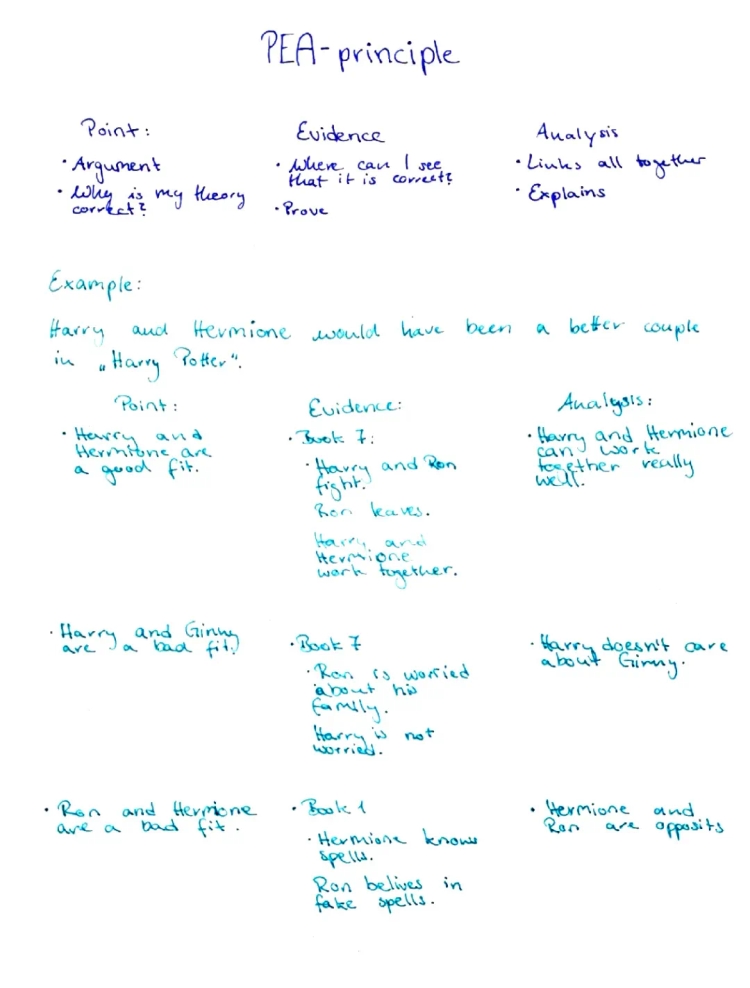 PEA-principle
Point:
• Argument
• Why is my theory
correct?
Evidence
• Where can I see
that it is correct?
• Prove
Analysis
• Links all together
• Explains
Example:
Harry and Hermione would have been a better couple
in „Harry Potter".
Point:
• Harry and
Hermione are
a good fit.
Evidence:
• Book 7:
• Harry and Ron
fight.
Ron leaves.
Harry and
Hermione
work together.
Analysis:
• Harry and Hermione
can work
together really
well.
• Harry and Ginny
are a bad fit.
• Book 7
• Ron is worried
about his
family.
Harry is not
worried.
• Harry doesn't care
about Ginny.
• Ron and Hermione
are a bad fit.
• Book 1
• Hermione knows
spells.
Ron belives in
fake spells.
• Hermione and
Ron are opposits